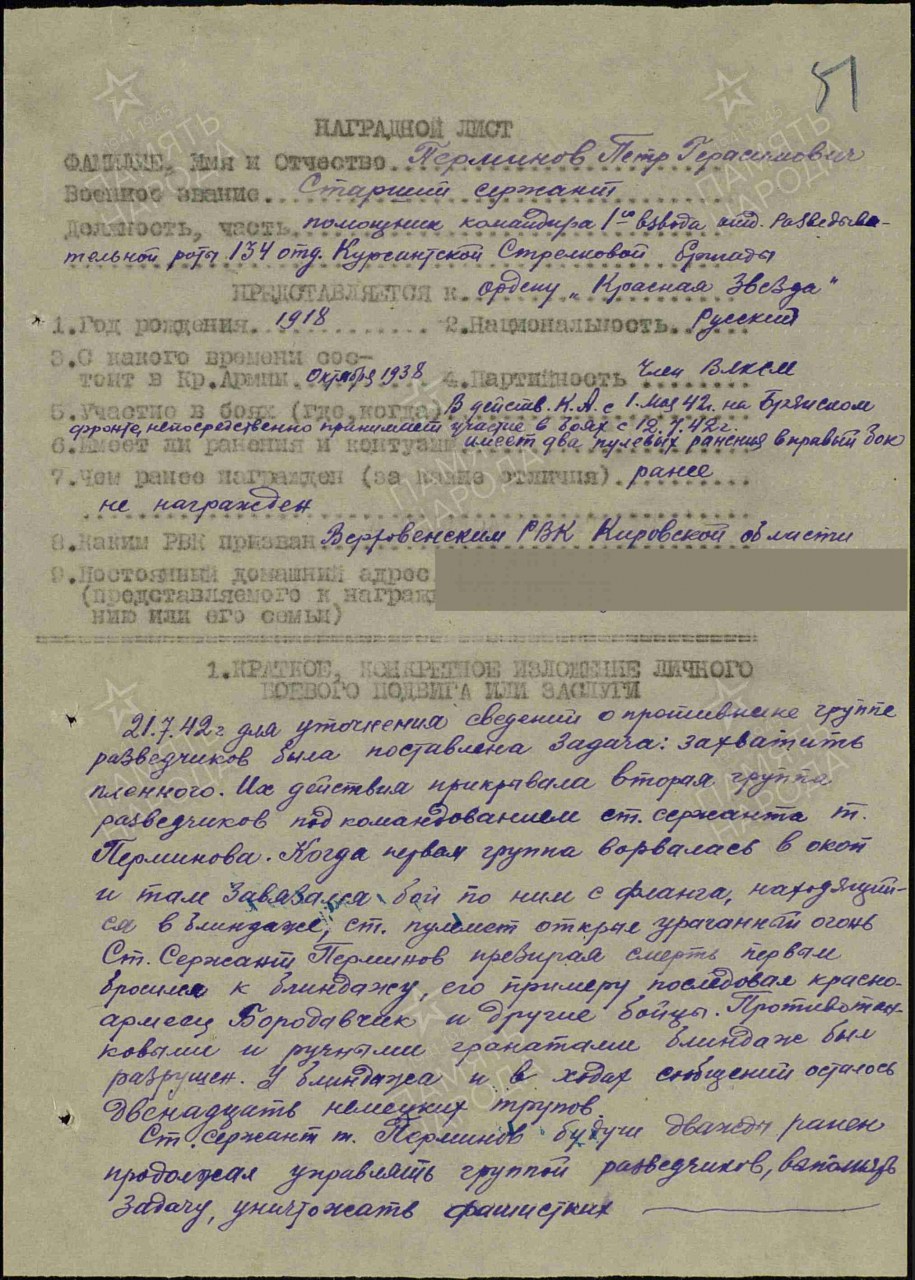 51
НАГРАДНОЙ ЛИСТ
ФАМИЛИЕ, Имя и Отчество Перминов Петр Герасимович
Военное звание. Старший сержант
Должность, часть. помощник командира 1го взвода отд. Разведыва-
тельной роты 134 отд. Курсантской Стрелковой бригады
ПРЕДСТАВЛЯЕТСЯ к ордену „Красная Звезда"
1.Год рождения. 1918 2.Национальность Русский
3.С какого времени сос-
тоит в Кр.Армии октября 1938 4.Партийность Член ВЛКСМ
5.Участие в боях (где,когда) В действ. К.А. с 1. мая 42 г. на Брянском
фронте, непосредственно принимает участие в боях с 12.7.42 г.
6.Имеет ли ранения и контузии имеет два пулевых ранения в правый бок
7.Чем ранее награжден (за какие отличия) ранее
не награжден
8.Каким РВК призван РВК Кировской области
9.Постоянный домашний адрес
(представляемого к награжд
нию или его семьи)
1.КРАТКОЕ, КОНКРЕТНОЕ ИЗЛОЖЕНИЕ ЛИЧНОГО
БОЕВОГО ПОДВИГА ИЛИ ЗАСЛУГИ
21.7.42 г для уточнения сведений о противнике группе
разведчиков была поставлена задача: захватить
пленного. Их действия прикрывала вторая группа
разведчиков под командованием ст. сержанта т.
Перминова. Когда первая группа ворвалась в окоп
и там завязался бой по ним с фланга, находящий-
ся в блиндаже, ст. пулемет открыл ураганный огонь
Ст. Сержант Перминов презирая смерть первым
бросился к блиндажу, его примеру последовал красно-
армеец Бородавчик и другие бойцы. Противотан-
ковыми и ручными гранатами блиндаж был
разрушен. У блиндажа и в ходах сообщений осталось
двенадцать немецких трупов.
Ст. Сержант т. Перминов будучи дважды ранен
продолжал управлять группой разведчиков, выполнять
задачу, уничтожать фашистких
ПАМЯТЬ
НАРОДА
1941-1945